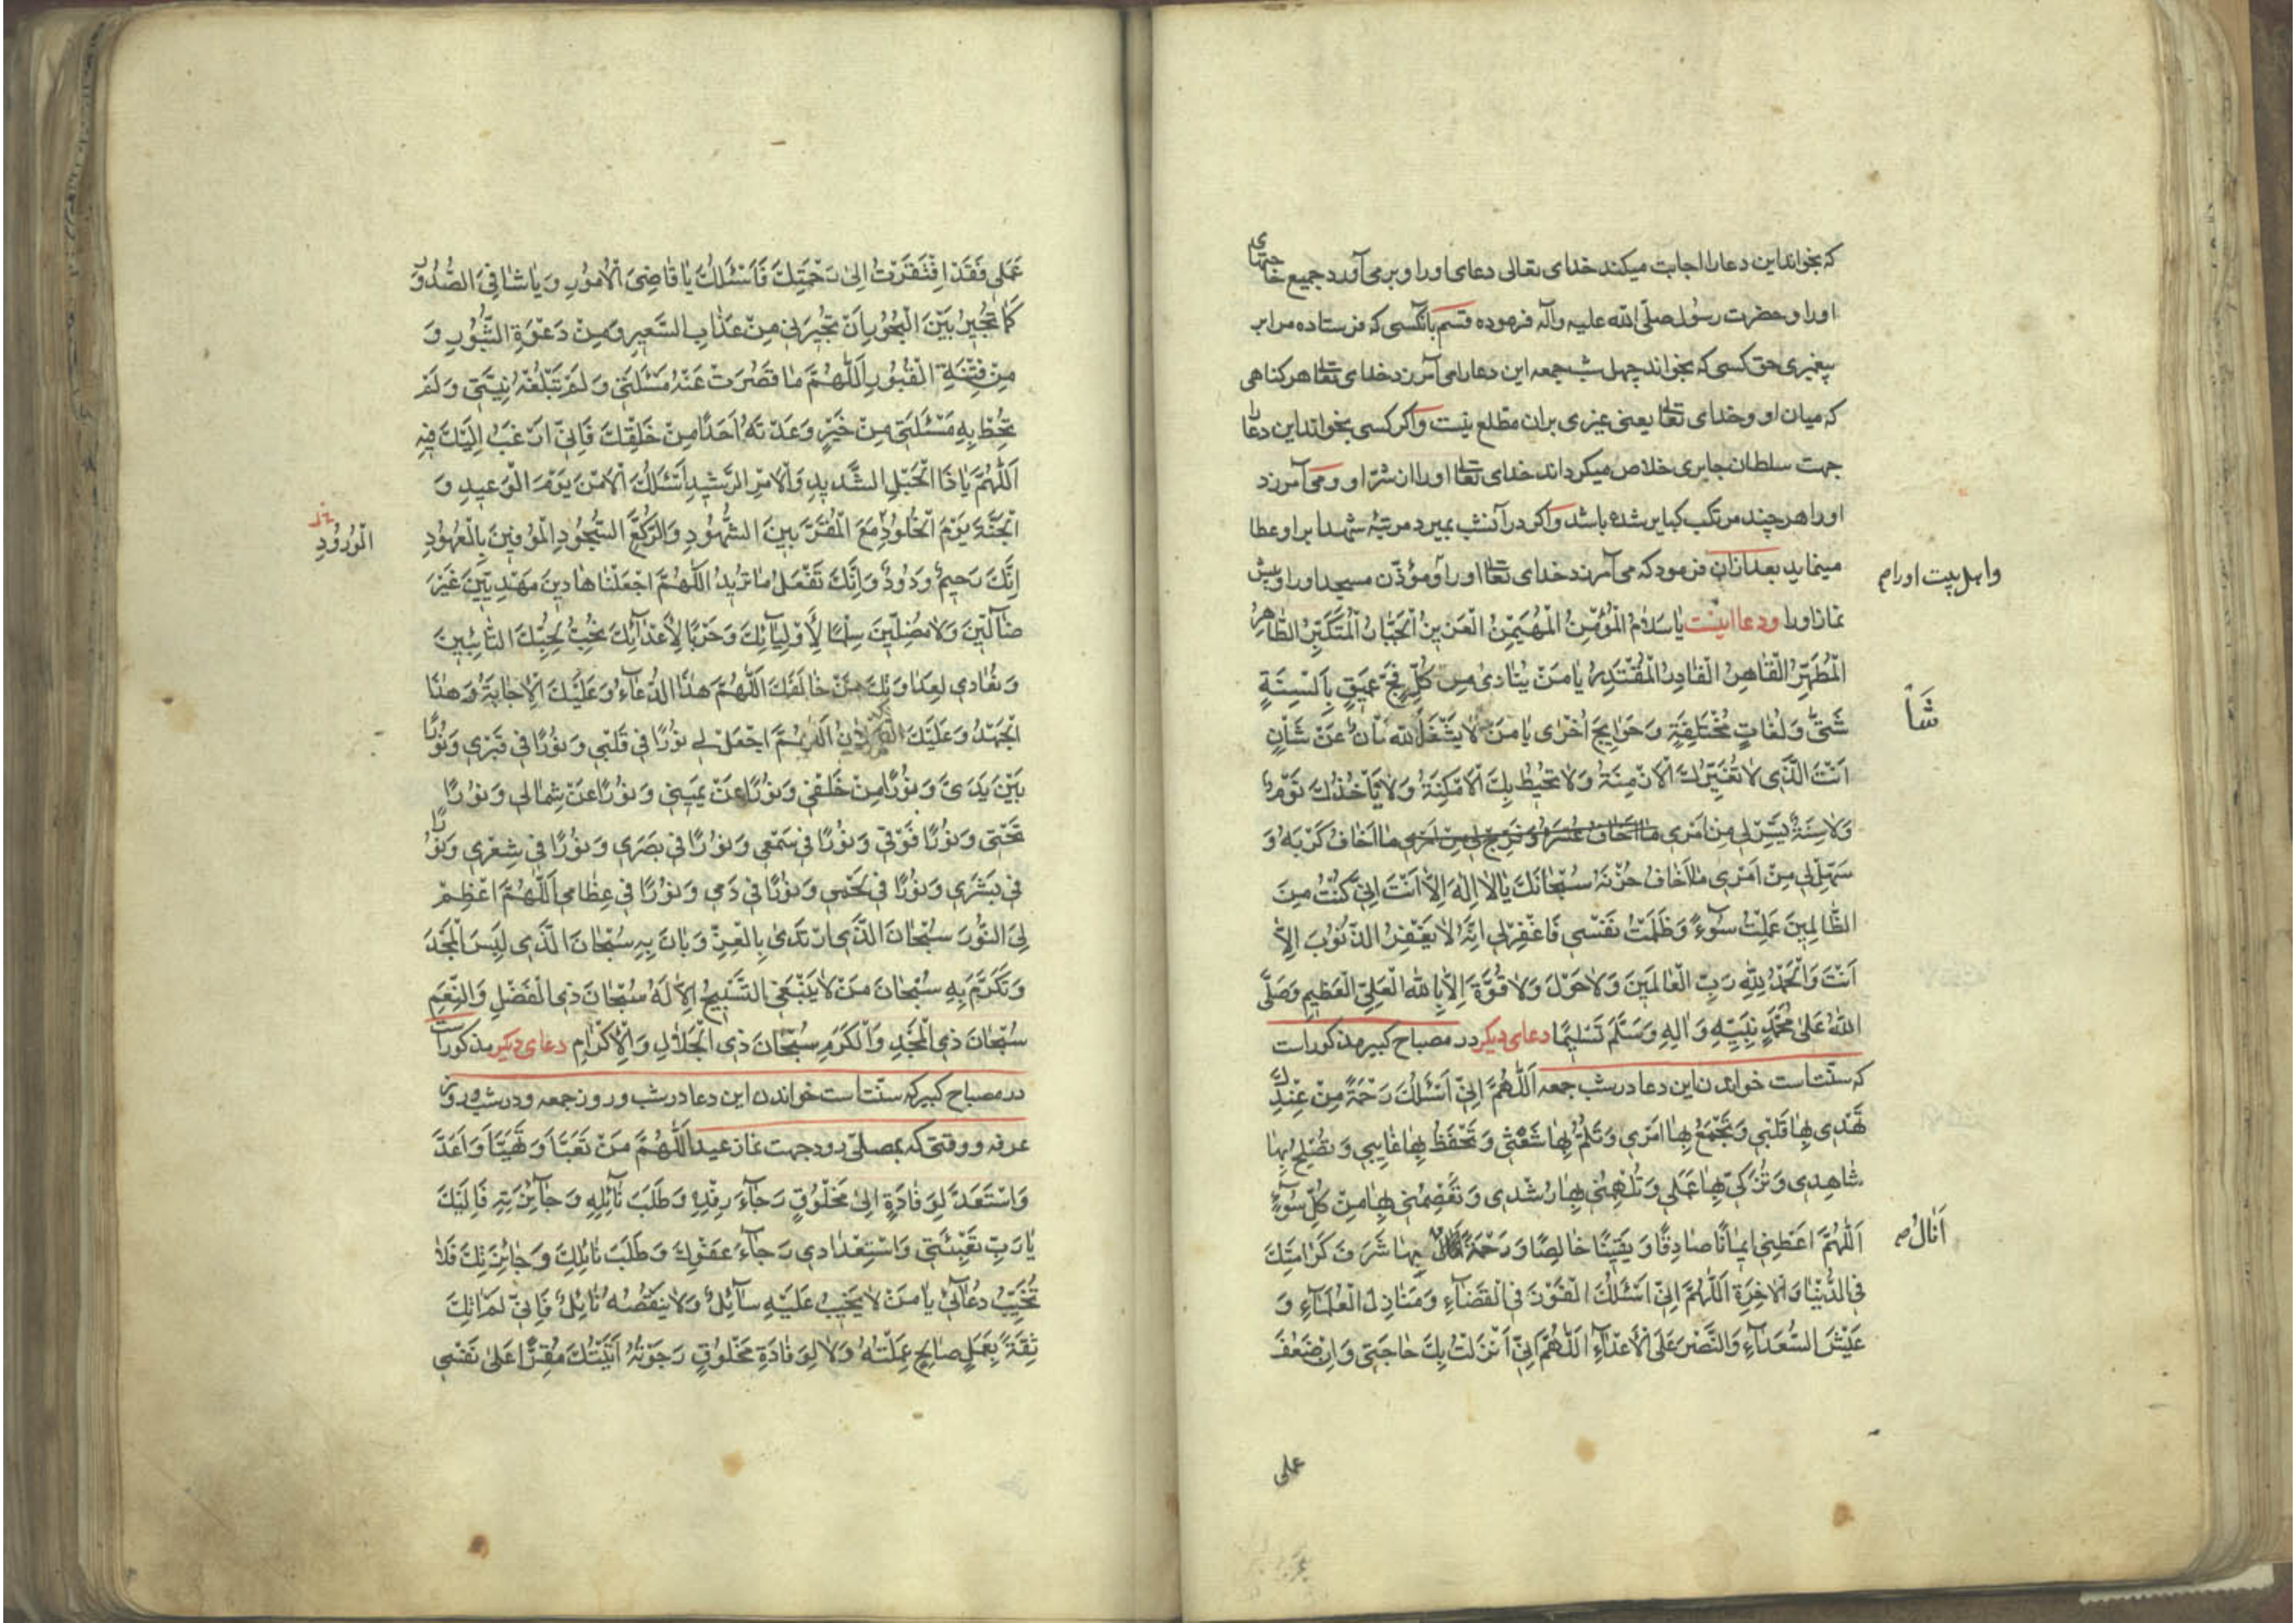 که بخواند این دعا را اجابت میکند خدای تعالی دعای او را و برمی آورد جمیع حاجتهای
او را و حضرت رسول صلّی الله علیه وآله فرموده قسم بانکسی که فرستاده مرا بر
پیغمبری حق کسی که بخواند چهل شب جمعه این دعا را می آمرزد خدای تعالی هر کناهی
که میان او و خدای تعالی یعنی غیری بران مطلع نیست واکر کسی بخواند این دعا را
جهت سلطان جابری خلاص میکرداند خدای تعالی او را از شرّ او ومی آمرزد
او را هر چند مرتکب کبایر شده باشد واکر در آنشب بمیرد مرتبهٔ شهدا بر او عطا
مینماید بعد ازان فرمود که می آمرزد خدای تعالی او را و مؤذّن مسجد او را و پیش
واهل بیت او را م
نماز او را ودعا اینست يَا سَلَامُ الْمُؤْمِنُ الْمُهَيْمِنُ الْعَزِيزُ الْجَبَّارُ الْمُتَكَبِّرُ الطَّاهِرُ
الْمُطَهِّرُ الْقَاهِرُ الْقَادِرُ الْمُقْتَدِرُ يَا مَنْ يُنَادَى مِنْ كُلِّ فَجٍّ عَمِيقٍ بِاَلْسِنَةٍ
شَتَّى وَلُغَاتٍ مُخْتَلِفَةٍ وَحَوَايِجَ اُخْرَى يَا مَنْ لَا يَشْغَلُهُ شَأْنٌ عَنْ شَأْنٍ
شَأ
اَنْتَ الَّذِي لَا تُغَيِّرُكَ الْاَزْمِنَةُ وَلَا تُحِيطُ بِكَ الْاَمْكِنَةُ وَلَا يَأْخُذُكَ نَوْمٌ
وَلَا سِنَةٌ يَسِّرْ لِي مِنْ اَمْرِي مَا اَخَافُ عُسْرَهُ وَفَرِّجْ لِي مِنْ اَمْرِي مَا اَخَافُ كَرْبَهُ وَ
سَهِّلْ لِي مِنْ اَمْرِي مَا اَخَافُ حُزْنَهُ سُبْحَانَكَ يَا لَا اِلٰهَ اِلَّا اَنْتَ اِنِّي كُنْتُ مِنَ
الظَّالِمِينَ عَمِلْتُ سُوءً وَظَلَمْتُ نَفْسِي فَاغْفِرْ لِي اِنَّهُ لَا يَغْفِرُ الذُّنُوبَ اِلَّا
اَنْتَ وَالْحَمْدُ لِلّٰهِ رَبِّ الْعَالَمِينَ وَلَا حَوْلَ وَلَا قُوَّةَ اِلَّا بِاللّٰهِ الْعَلِيِّ الْعَظِيمِ وَصَلَّى
اللّٰهُ عَلَى مُحَمَّدٍ نَبِيِّهِ وَالِهِ وَسَلَّمَ تَسْلِيمًا دعای دیکر در مصباح کبیر مذکور است
که سنّت است خواندن این دعا در شب جمعه اَللّٰهُمَّ اِنِّي اَسْئَلُكَ رَحْمَةً مِنْ عِنْدِكَ
تَهْدِي بِهَا قَلْبِي وَتَجْمَعُ بِهَا اَمْرِي وَتَلُمُّ بِهَا شَعْثِي وَتَحْفَظُ بِهَا غَايِبِي وَتُصْلِحُ بِهَا
شَاهِدِي وَتُزَكِّي بِهَا عَمَلِي وَتُلْهِمُنِي بِهَا رُشْدِي وَتَعْصِمُنِي بِهَا مِنْ كُلِّ سُوءٍ
اَللّٰهُمَّ اَعْطِنِي اِيمَانًا صَادِقًا وَيَقِينًا خَالِصًا وَرَحْمَةً بِهَا شَرَفَ كَرَامَتِكَ
اَنَالُ م
فِي الدُّنْيَا وَالْاخِرَةِ اَللّٰهُمَّ اِنِّي اَسْئَلُكَ الْفَوْزَ فِي الْقَضَاءِ وَمَنَازِلَ الْعُلَمَاءِ وَ
عَيْشَ السُّعَدَاءِ وَالنَّصْرَ عَلَى الْاَعْدَاءِ اَللّٰهُمَّ اِنِّي اَنْزَلْتُ بِكَ حَاجَتِي وَاِنْ ضَعُفَ
عملی
عَمَلِي فَقَدِ افْتَقَرْتُ اِلَى رَحْمَتِكَ فَاَسْئَلُكَ يَا قَاضِيَ الْاُمُورِ وَيَا شَافِيَ الصُّدُورِ
كَمَا تُجِيرُ بَيْنَ الْبُحُورِ اَنْ تُجِيرَنِي مِنْ عَذَابِ السَّعِيرِ وَمِنْ دَعْوَةِ الثُّبُورِ وَ
مِنْ فِتْنَةِ الْقُبُورِ اَللّٰهُمَّ مَا قَصُرَتْ عَنْهُ مَسْئَلَتِي وَلَمْ تَبْلُغْهُ نِيَّتِي وَلَمْ
تُحِطْ بِهِ مَسْئَلَتِي مِنْ خَيْرٍ وَعَدْتَهُ اَحَدًا مِنْ خَلْقِكَ فَاِنِّي اَرْغَبُ اِلَيْكَ فِيهِ
اَللّٰهُمَّ يَا ذَا الْحَبْلِ الشَّدِيدِ وَالْاَمْرِ الرَّشِيدِ اَسْئَلُكَ الْاَمْنَ يَوْمَ الْوَعِيدِ وَ
الْجَنَّةَ يَوْمَ الْخُلُودِ مَعَ الْمُقَرَّبِينَ الشُّهُودِ وَالرُّكَّعِ السُّجُودِ الْمُوفِينَ بِالْعُهُودِ
الْوُرُودِ
اِنَّكَ رَحِيمٌ وَدُودٌ وَاِنَّكَ تَفْعَلُ مَا تُرِيدُ اَللّٰهُمَّ اجْعَلْنَا هَادِينَ مَهْدِيِّينَ غَيْرَ
ضَالِّينَ وَلَا مُضِلِّينَ سِلْمًا لِاَوْلِيَائِكَ وَحَرْبًا لِاَعْدَائِكَ نُحِبُّ لِحُبِّكَ التَّائِبِينَ
وَنُعَادِي لِعَدَاوَتِكَ مَنْ خَالَفَكَ اَللّٰهُمَّ هٰذَا الدُّعَاءُ وَعَلَيْكَ الْاِجَابَةُ وَهٰذَا
الْجَهْدُ وَعَلَيْكَ اجْعَلْ لِي نُورًا فِي قَلْبِي وَنُورًا فِي قَبْرِي وَنُورًا
بَيْنَ يَدَيَّ وَنُورًا مِنْ خَلْفِي وَنُورًا عَنْ يَمِينِي وَنُورًا عَنْ شِمَالِي وَنُورًا
تَحْتِي وَنُورًا فَوْقِي وَنُورًا فِي سَمْعِي وَنُورًا فِي بَصَرِي وَنُورًا فِي شِعْرِي وَنُورًا
فِي بَشَرِي وَنُورًا فِي لَحْمِي وَنُورًا فِي دَمِي وَنُورًا فِي عِظَامِي اَللّٰهُمَّ اَعْظِمْ
لِيَ النُّورَ سُبْحَانَ الَّذِي ارْتَدَى بِالْعِزِّ وَبَانَ بِهِ سُبْحَانَ الَّذِي لَبِسَ الْمَجْدَ
وَتَكَرَّمَ بِهِ سُبْحَانَ مَنْ لَا يَنْبَغِي التَّسْبِيحُ اِلَّا لَهُ سُبْحَانَ ذِي الْفَضْلِ وَالنِّعَمِ
سُبْحَانَ ذِي الْمَجْدِ وَالْكَرَمِ سُبْحَانَ ذِي الْجَلَالِ وَالْاِكْرَامِ دعای دیکر مذکور است
در مصباح کبیر که سنّت است خواندن این دعا در شب و روز جمعه و در شب و روز
عرفه و وقتی که بمصلّی رود جهت نماز عید اَللّٰهُمَّ مَنْ تَعَبَّأَ وَتَهَيَّأَ وَاَعَدَّ
وَاسْتَعَدَّ لِوِفَادَةٍ اِلَى مَخْلُوقٍ رَجَاءَ رِفْدِهِ وَطَلَبَ نَائِلِهِ وَجَائِزَتِهِ فَاِلَيْكَ
يَا رَبِّ تَعْبِئَتِي وَاسْتِعْدَادِي رَجَاءَ عَفْوِكَ وَطَلَبَ نَائِلِكَ وَجَائِزَتِكَ فَلَا
تُخَيِّبْ دُعَائِي يَا مَنْ لَا يَخِيبُ عَلَيْهِ سَائِلٌ وَلَا يَنْقُصُهُ نَائِلٌ فَاِنِّي لَمْ اٰتِكَ
ثِقَةً بِعَمَلٍ صَالِحٍ عَمِلْتُهُ وَلَا لِوِفَادَةِ مَخْلُوقٍ رَجَوْتُهُ اَتَيْتُكَ مُقِرًّا عَلَى نَفْسِي